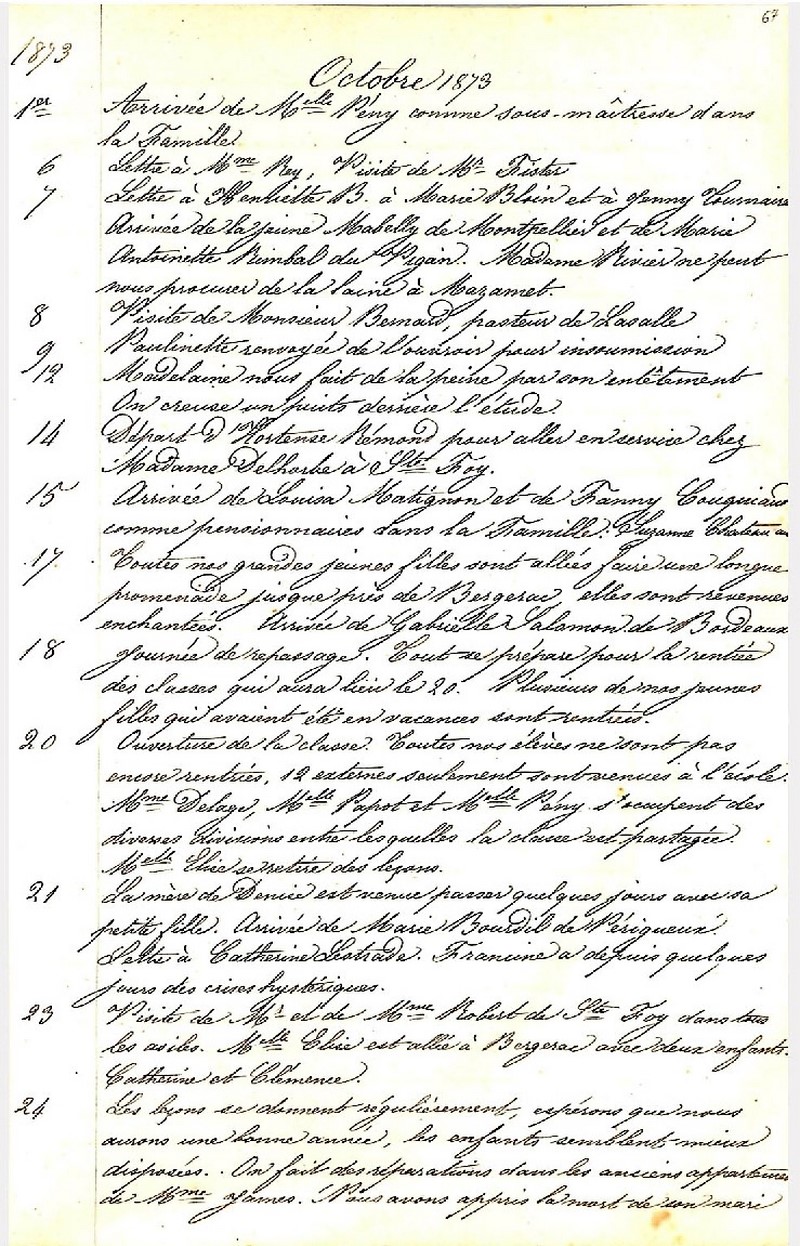 67
1873
Octobre 1873
1er Arrivée de Melle Pény comme sous-maîtresse dans
la Famille.
6 Lettre à Mme Rey, Visite de Mr Fister
7 Lettre à Henriette B. à Marie Bloin et à Jenny Tournaire
Arrivée de la jeune Mabelly de Montpellier et de Marie
Antoinette Rimbal du Vigan. Madame Rivier ne peut
nous procurer de la laine à Mazamet.
8 Visite de Monsieur Bernard, pasteur de Lasalle
9 Paulinette renvoyée de l'ouvroir pour insoumission
12 Madelaine nous fait de la peine par son entêtement
On creuse un puits derrière l'étude.
14 Départ d'Hortense Rémond pour aller en service chez
Madame Delhorbe à Ste Foy.
15 Arrivée de Louisa Matignon et de Fanny
comme pensionnaires dans la Famille. Suzanne
17 Toutes nos grandes jeunes filles sont allées faire une longue
promenade jusque près de Bergerac, elles sont revenues
enchantées. Arrivée de Gabrielle Salamon de Bordeaux
18 Journée de repassage. Tout se prépare pour la rentrée
des classes qui aura lieu le 20. Plusieurs de nos jeunes
filles qui avaient été en vacances sont rentrées.
20 Ouverture de la classe. Toutes nos élèves ne sont pas
encore rentrées, 12 externes seulement sont venues à l'école.
Mme Delage, Melle Papot et Melle Pény s'occupent des
diverses divisions entre lesquelles la classe est partagée.
Melle Elise se retire des leçons.
21 La mère de Denise est venue passer quelques jours avec sa
petite fille. Arrivée de Marie Bourdil de Périgueux.
Lettre à Catherine Lestrade. Francine a depuis quelques
jours des crises hystériques.
23 Visite de Mr et de Mme Robert de Ste Foy dans tous
les asiles. Melle Elise est allée à Bergerac avec deux enfants.
Catherine et Clémence.
24 Les leçons se donnent régulièrement, espérons que nous
aurons une bonne année, les enfants semblent mieux
disposées. On fait des réparations dans les anciens
de Mme James. Nous avons appris la mort de son mari